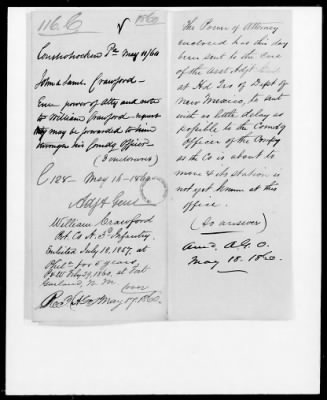 116. C
1860
Conshohocken Pa May 11/60
John & Saml. Crawford -
Encl. power of atty and note
to William Crawford - request
may be forwarded to him
through his Comdg Officer
(3 enclosures)
C 128 - May 14 - 1860
Adjt Genl
William Crawford
Pvt. Co. A. 3d Infantry,
Enlisted July 18, 1857, at
Phila for 5 years,
at Fort
Garland, N. M.
over
May 17, 1860
The Power of Attorney
enclosed has this day
been sent to the care
of the Asst. Adjt. Genl
at Hd Qrs of Dept of
New Mexico, to be sent
with as little delay as
possible to the Comdg
Officer of the Compy
as the Co is about to
move & its station is
not yet known at this
office.
(So answer)
Ansd. A.G.O.
May 18. 1860.